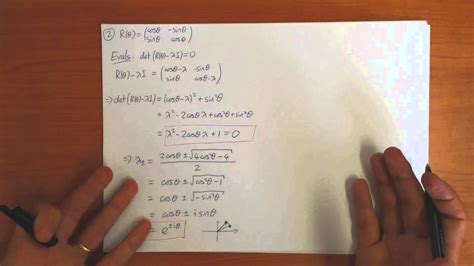 ② R(θ) = (cosθ -sinθ
sinθ cosθ)
Evals: det(R(θ)-λI)=0
R(θ)-λI = (cosθ-λ -sinθ
sinθ cosθ-λ)
⇒ det(R(θ)-λI) = (cosθ-λ)² + sin²θ
= λ² - 2cosθλ + cos²θ + sin²θ
= λ² - 2cosθλ + 1 = 0
⇒ λ± = (2cosθ ± √(4cos²θ - 4))/2
= cosθ ± √(cos²θ - 1)
= cosθ ± √(-sin²θ)
= cosθ ± i sinθ
= e^(±iθ)